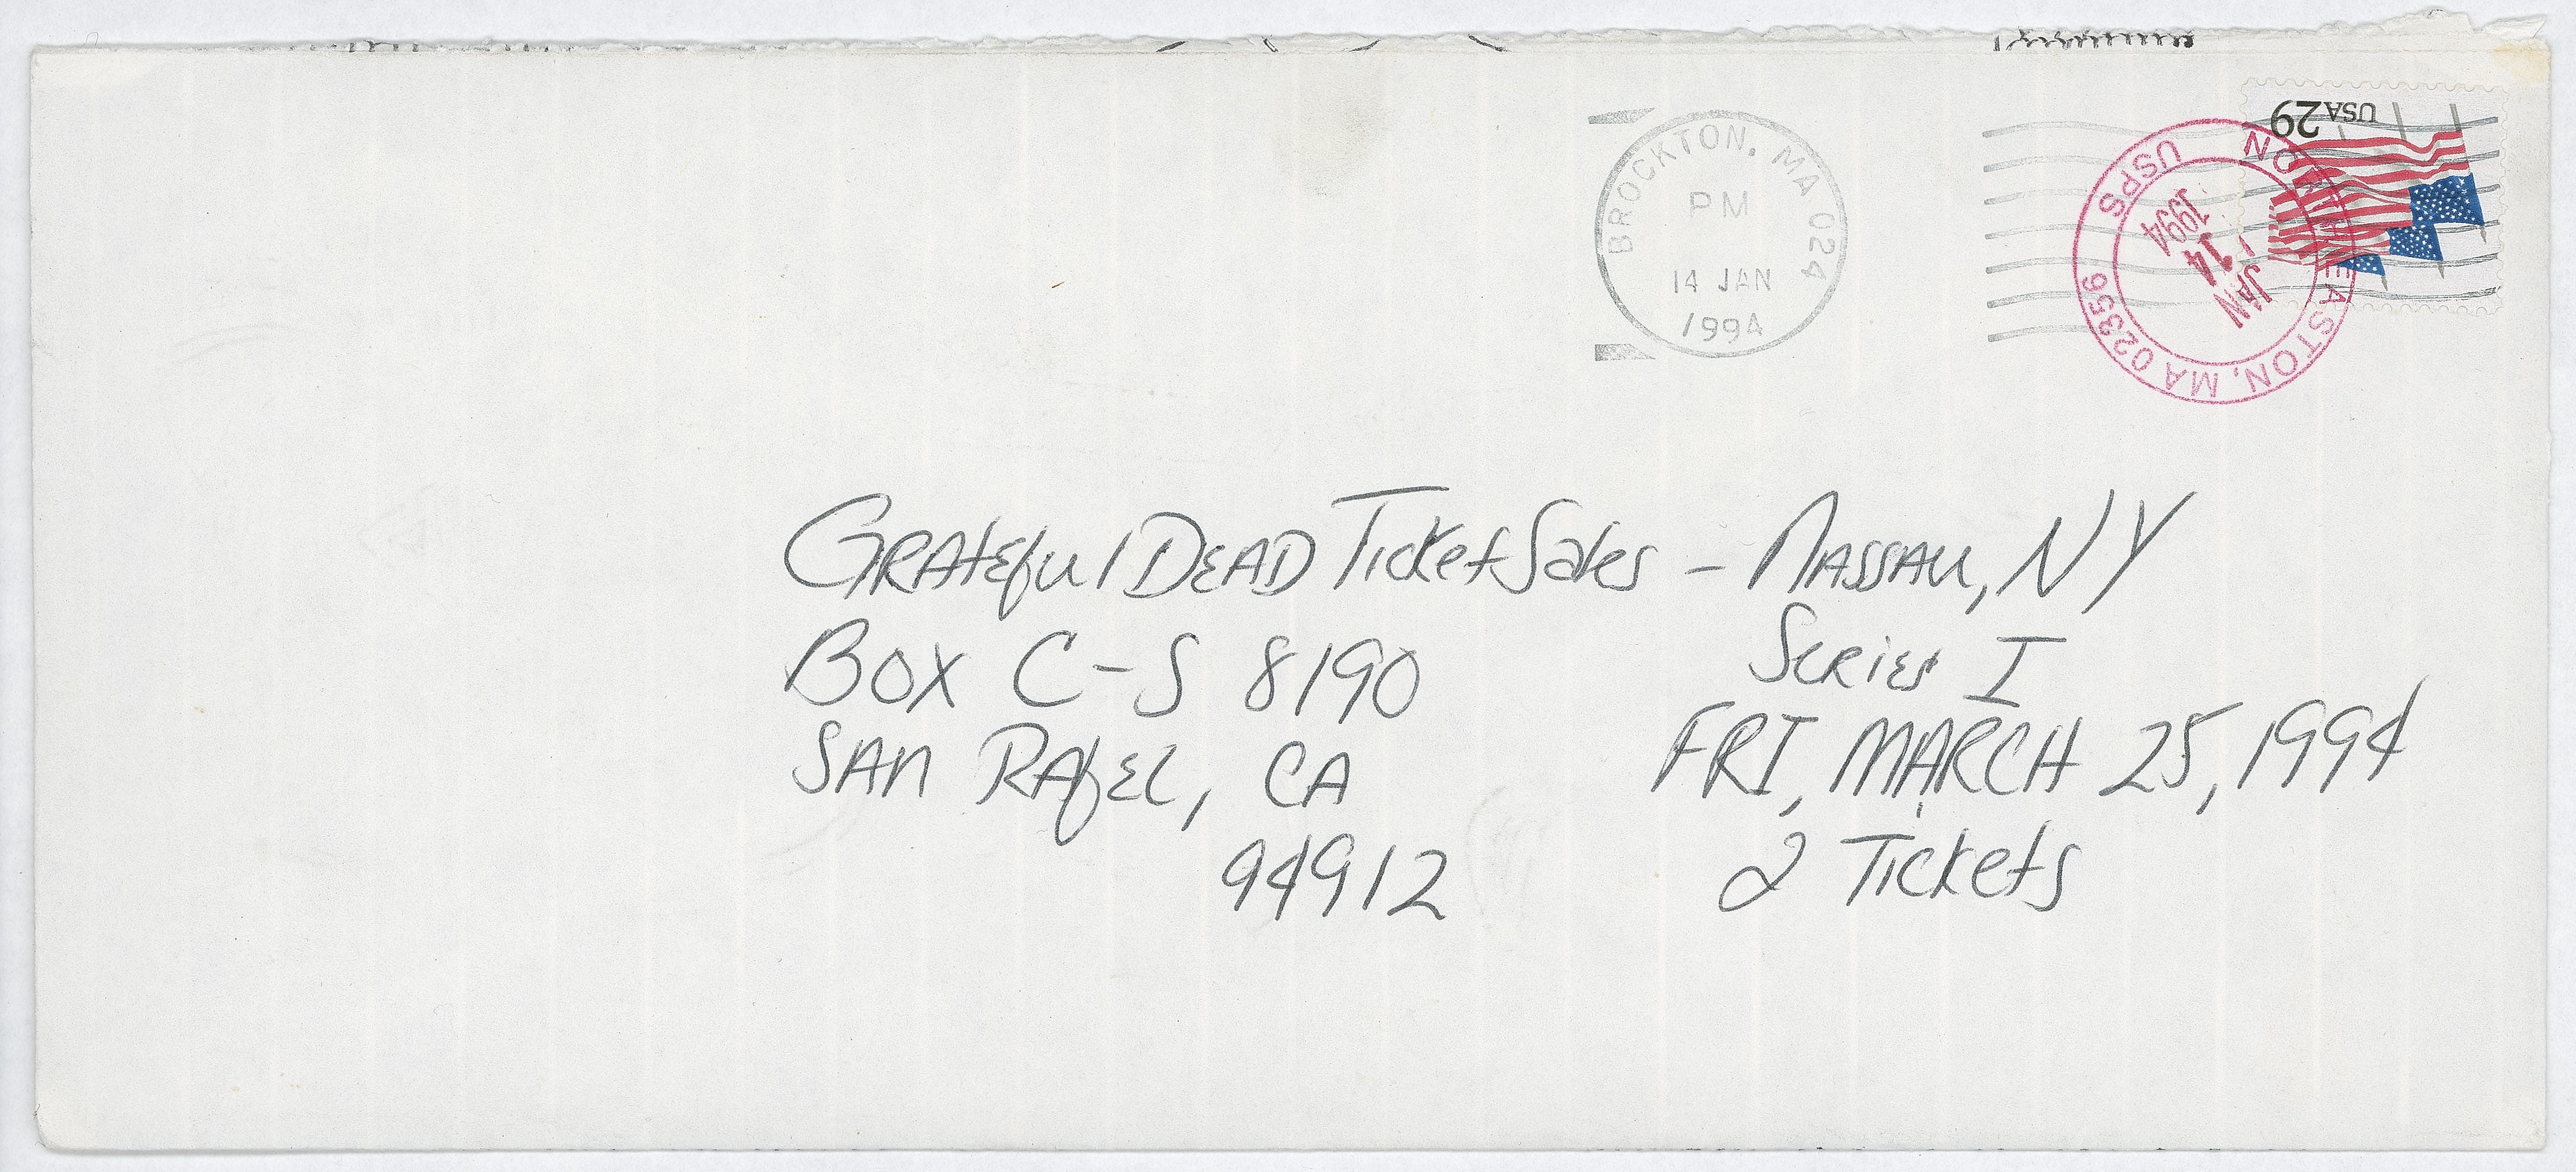 USA 29
BROCKTON, MA 024
PM
14 JAN
1994
EASTON, MA 02356
USPS
JAN
14
1994
Grateful Dead Ticket Sales - Nassau, NY
Series I
Box C-S 8190
San Rafel, CA
94912
FRI, MARCH 25, 1994
2 Tickets